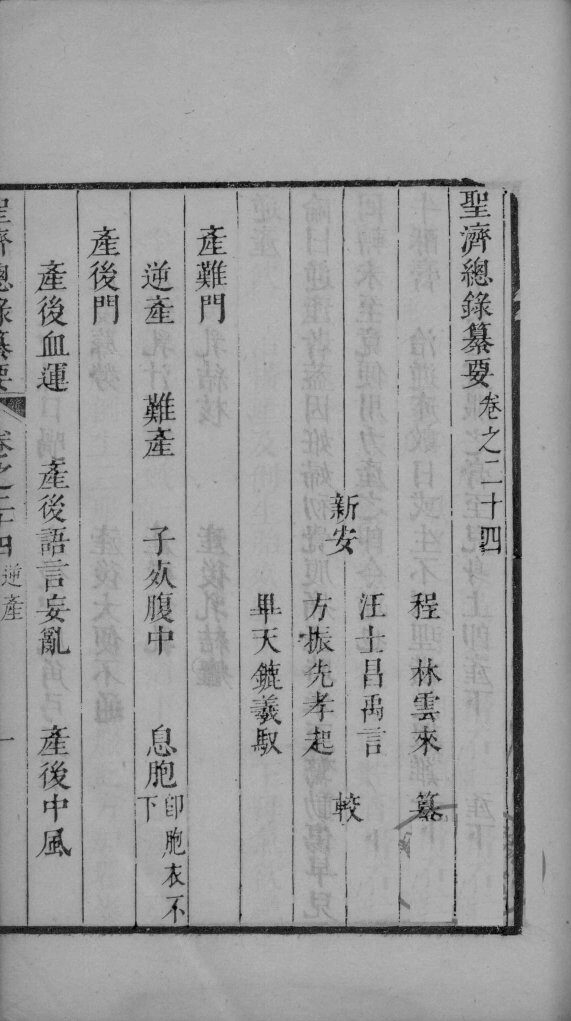 聖濟總錄纂要卷之二十四
程林雲來纂
新安汪士昌禹言較
方振先孝起
畢天鑣羲馭
產難門
逆產 難產 子死腹中 息胞卽胞衣不下
產後門
產後血運 產後語言妄亂 產後中風
聖濟總錄纂要 卷之二十四 逆產 一